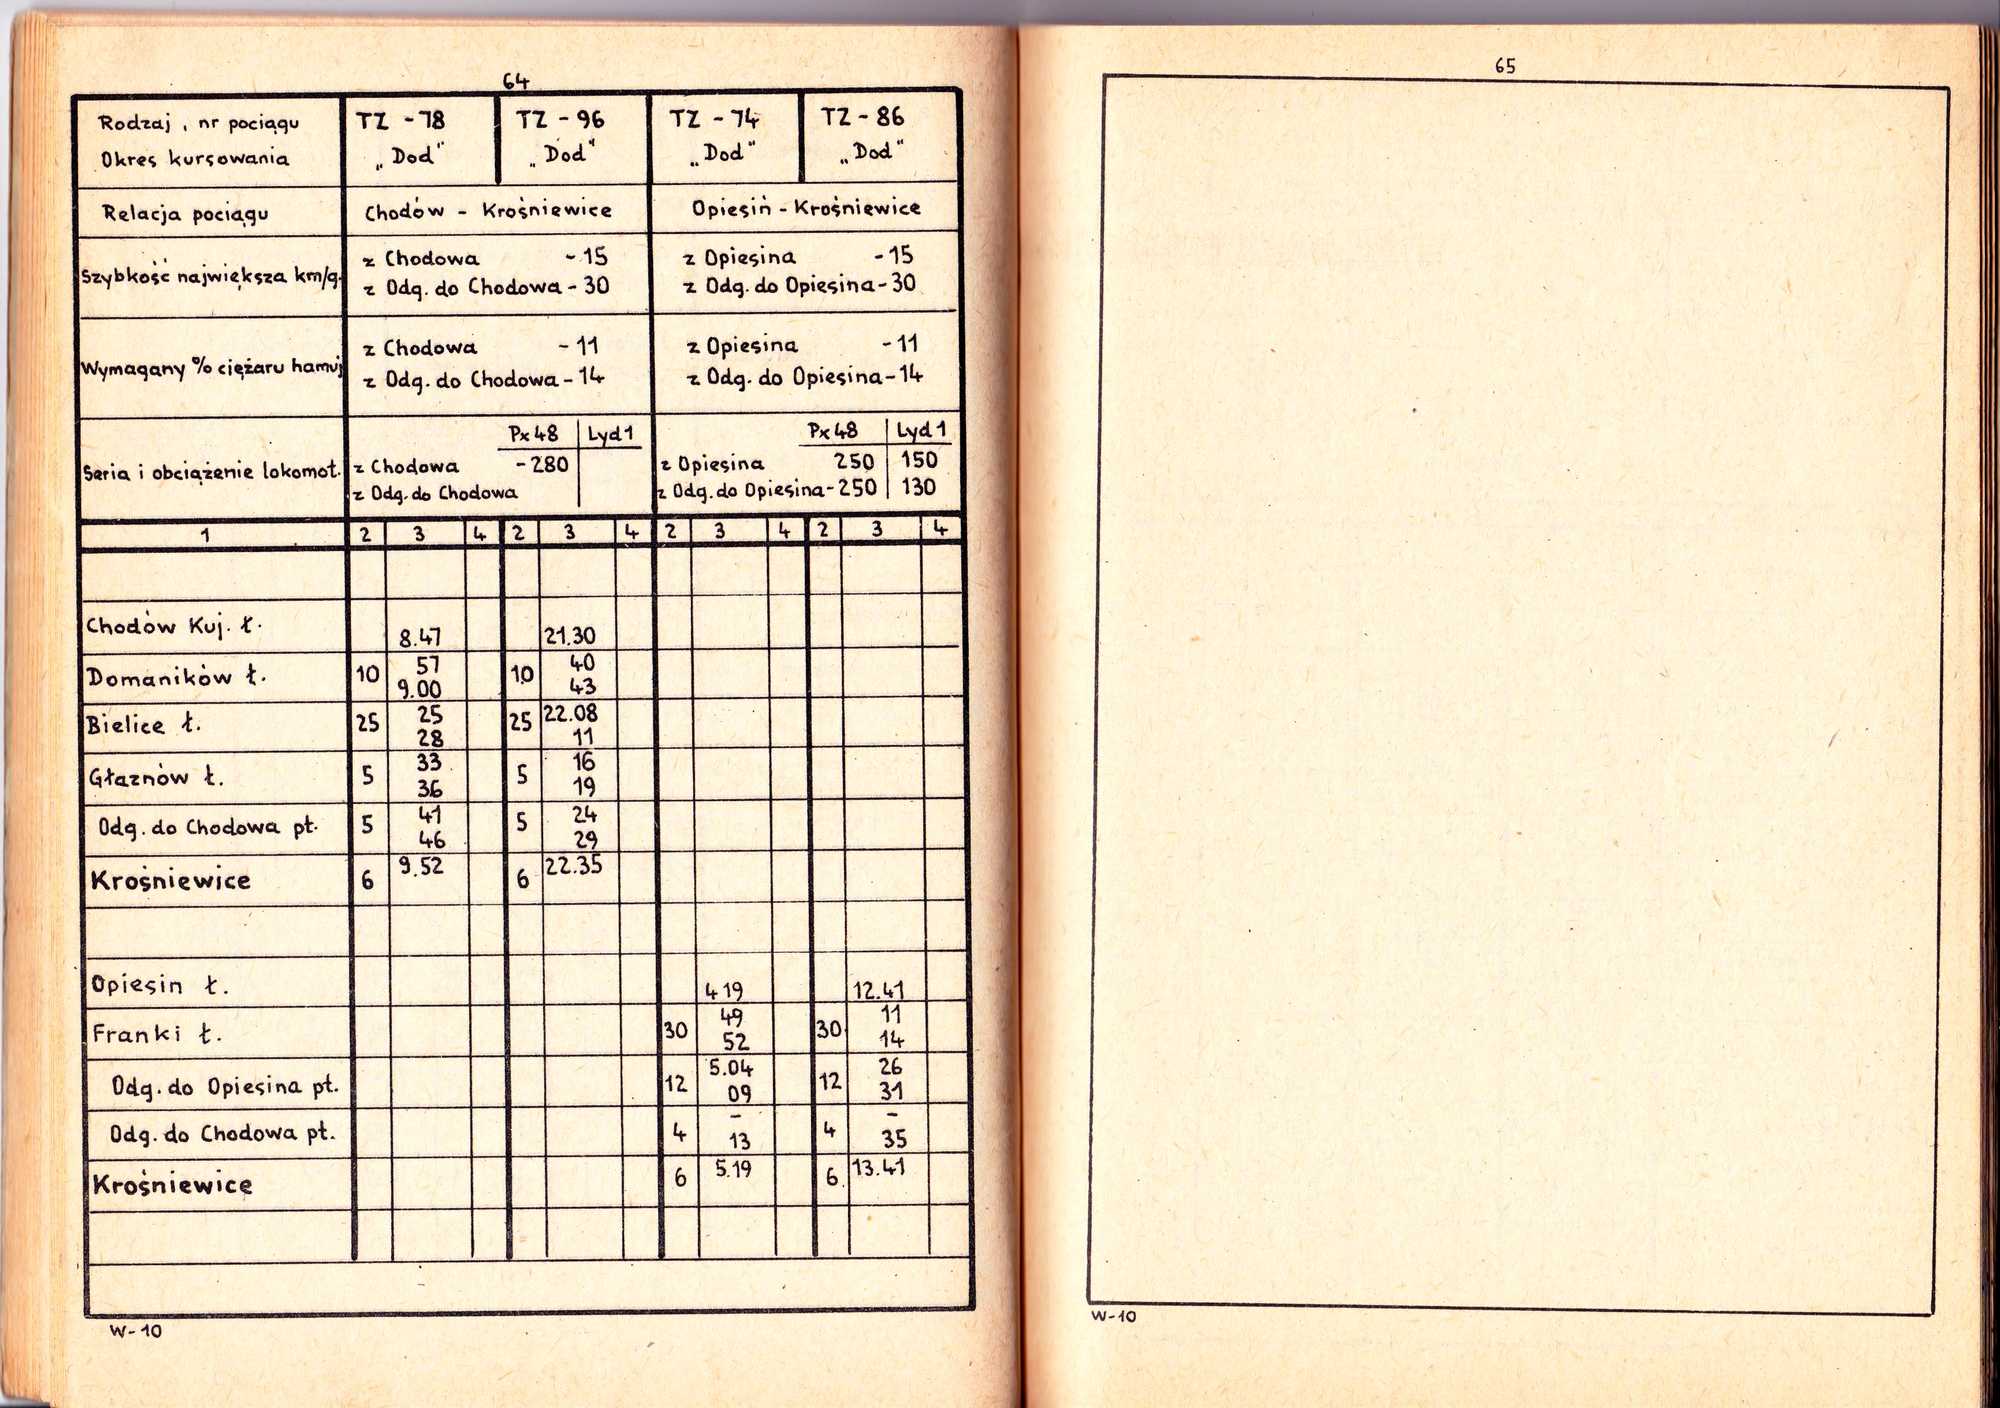 64
Rodzaj, nr pociągu TZ - 78 TZ - 96 TZ - 74 TZ - 86
Okres kursowania „Dod" „Dod" „Dod" „Dod"
Relacja pociągu Chodów - Krośniewice Opiesiń - Krośniewice
z Chodowa - 15 z Opiesina - 15
Szybkość największa km/g.
z Odg. do Chodowa - 30 z Odg. do Opiesina - 30
z Chodowa - 11 z Opiesina - 11
Wymagany % ciężaru hamuj
z Odg. do Chodowa - 14 z Odg. do Opiesina - 14
Px48 Lyd1 Px48 Lyd1
Seria i obciążenie lokomot. z Chodowa - 280 z Opiesina 250 150
z Odg. do Chodowa z Odg. do Opiesina - 250 130
1 2 3 4 2 3 4 2 3 4 2 3 4
Chodów Kuj. ł. 8.47 21.30
Domaników ł. 10 57 10 40
9.00 43
Bielice ł. 25 25 25 22.08
28 11
Głaznów ł. 5 33 5 16
36 19
Odg. do Chodowa pt. 5 41 5 24
46 29
Krośniewice 6 9.52 6 22.35
Opiesin ł. 4 19 12.41
Franki ł. 30 49 30 11
52 14
Odg. do Opiesina pt. 12 5.04 12 26
09 31
Odg. do Chodowa pt. 4 – 4 –
13 35
Krośniewice 6 5.19 6 13.41
W-10
65
W-10